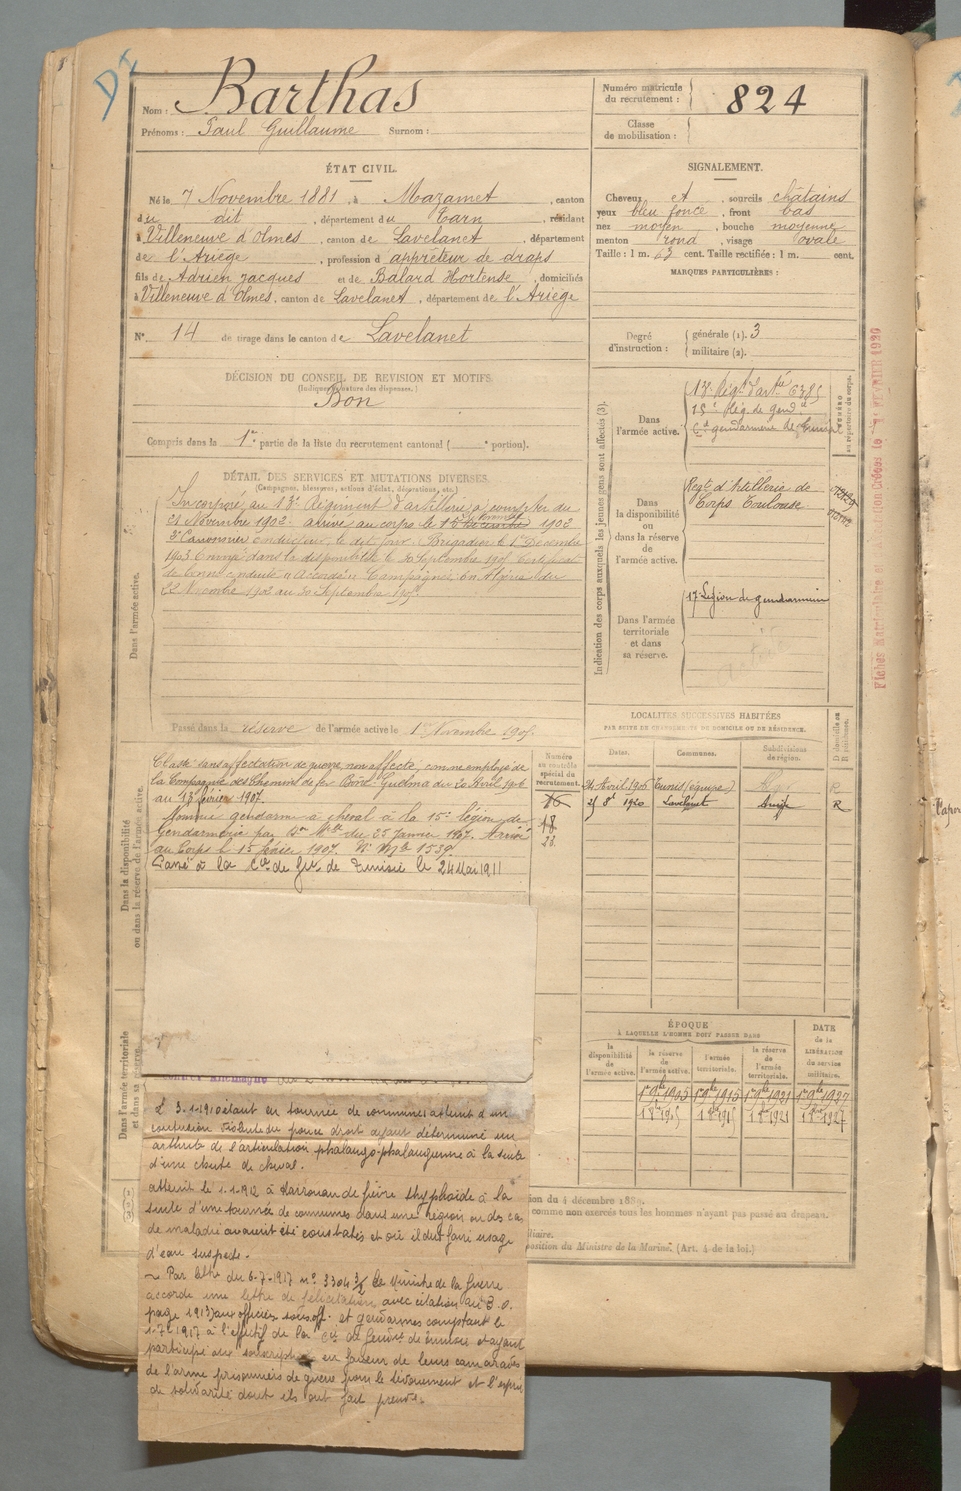 Nom : Barthas
Prénoms : Paul Guillaume Surnom :
Numéro matricule du recrutement : 824
Classe de mobilisation :
ÉTAT CIVIL.
Né le 7 Novembre 1881, à Mazamet, canton
du dit, département du Tarn, résidant
à Villeneuve d'Olmes, canton de Lavelanet, département
de l'Ariège, profession d'apprêteur de draps
fils de Adrien Jacques et de Balard Hortense, domiciliés
à Villeneuve d'Olmes, canton de Lavelanet, département de l'Ariège
N° 14 de tirage dans le canton de Lavelanet
SIGNALEMENT.
Cheveux et, sourcils châtains
yeux bleu foncé, front bas
nez moyen, bouche moyenne
menton rond, visage ovale
Taille : 1 m. 63 cent. Taille rectifiée : 1 m. cent.
MARQUES PARTICULIÈRES :
Degré d'instruction : générale (1). 3
militaire (2).
DÉCISION DU CONSEIL DE REVISION ET MOTIFS
(Indiquer la nature des dispenses.)
Bon
Compris dans la 1re partie de la liste du recrutement cantonal ( e portion).
DÉTAIL DES SERVICES ET MUTATIONS DIVERSES.
(Campagnes, blessures, actions d'éclat, décorations, etc.)
Dans l'armée active.
Incorporé au 13e Régiment d'artillerie à compter du
21 Novembre 1902 arrivé au corps le 1902
2e Canonnier conducteur le dit jour. Brigadier le 1er Décembre
1903. Envoyé dans la disponibilité le 30 Septembre 1905 Certificat
de bonne conduite "Accordé". Campagnes : en Algérie du
22 Novembre 1902 au 30 Septembre 1905
Passé dans la réserve de l'armée active le 1er Novembre 1905
Indication des corps auxquels les jeunes gens sont affectés (3).
Dans l'armée active.
13e Régt d'artie 6385
15e Lég. de gend.ie
Cie gendarmerie de Tunisie
NUMÉRO au répertoire du corps.
Dans la disponibilité ou dans la réserve de l'armée active.
Regt d'Artillerie de
Corps Toulouse
Dans l'armée territoriale et dans sa réserve.
17e Légion de gendarmerie
LOCALITÉS SUCCESSIVES HABITÉES
PAR SUITE DE CHANGEMENTS DE DOMICILE OU DE RÉSIDENCE.
Dates. Communes. Subdivisions de région. D domicile ou R résidence.
21 Avril 1906 Tunis (équipe) R
25 8e 1920 Lavelanet Ariège R
Dans la disponibilité ou dans la réserve de l'armée active.
Classé sans affectation de guerre non affecté, comme employé de
la Compagnie des Chemins de fer Bône-Guelma du 20 Avril 1906
au 13 février 1907.
Nommé gendarme à cheval à la 15e légion de
Gendarmerie par Don Mlle du 25 Janvier 1907. Arrivé
au Corps le 15 février 1907. No Mle 1539
Passé à la Cie de Gie de Tunisie le 24 Mai 1911
Numéro au contrôle spécial du recrutement.
16
18
23.
ÉPOQUE
À LAQUELLE L'HOMME DOIT PASSER DANS
la disponibilité de l'armée active. la réserve de l'armée active. l'armée territoriale. la réserve de l'armée territoriale.
DATE de la LIBÉRATION du service militaire.
1er 9bre 1905 1er 9bre 1915 1er 9bre 1921 1er 9bre 1927
Dans l'armée territoriale et dans sa réserve.
Le 3-1-1910 étant en tournée de communes atteint d'une
contusion violente du pouce droit ayant déterminé une
arthrite de l'articulation phalango-phalangienne à la suite
d'une chute de cheval.
atteint le 1-1-1912 à Kairouan de fièvre typhoïde à la
suite d'une tournée de communes dans une région où des cas
de maladie avaient été constatés et où il dut faire usage
d'eau suspecte.
~ Par lettre du 6-7-1917 n° 3304 3/2 le Ministre de la Guerre
accorde une lettre de félicitation avec citation au B.O.
page 1913) aux officiers sous-off. et gendarmes comptant le
1-7-1917 à l'effectif de la Cie de Gendrie de Tunisie et ayant
participé aux souscriptions en faveur de leurs camarades
de l'arme prisonniers de guerre pour le dévouement et l'esprit
de solidarité dont ils ont fait preuve.
ion du 4 décembre 1889.
comme non exercés tous les hommes n'ayant pas passé au drapeau.
position du Ministre de la Marine. (Art. 4 de la loi.)